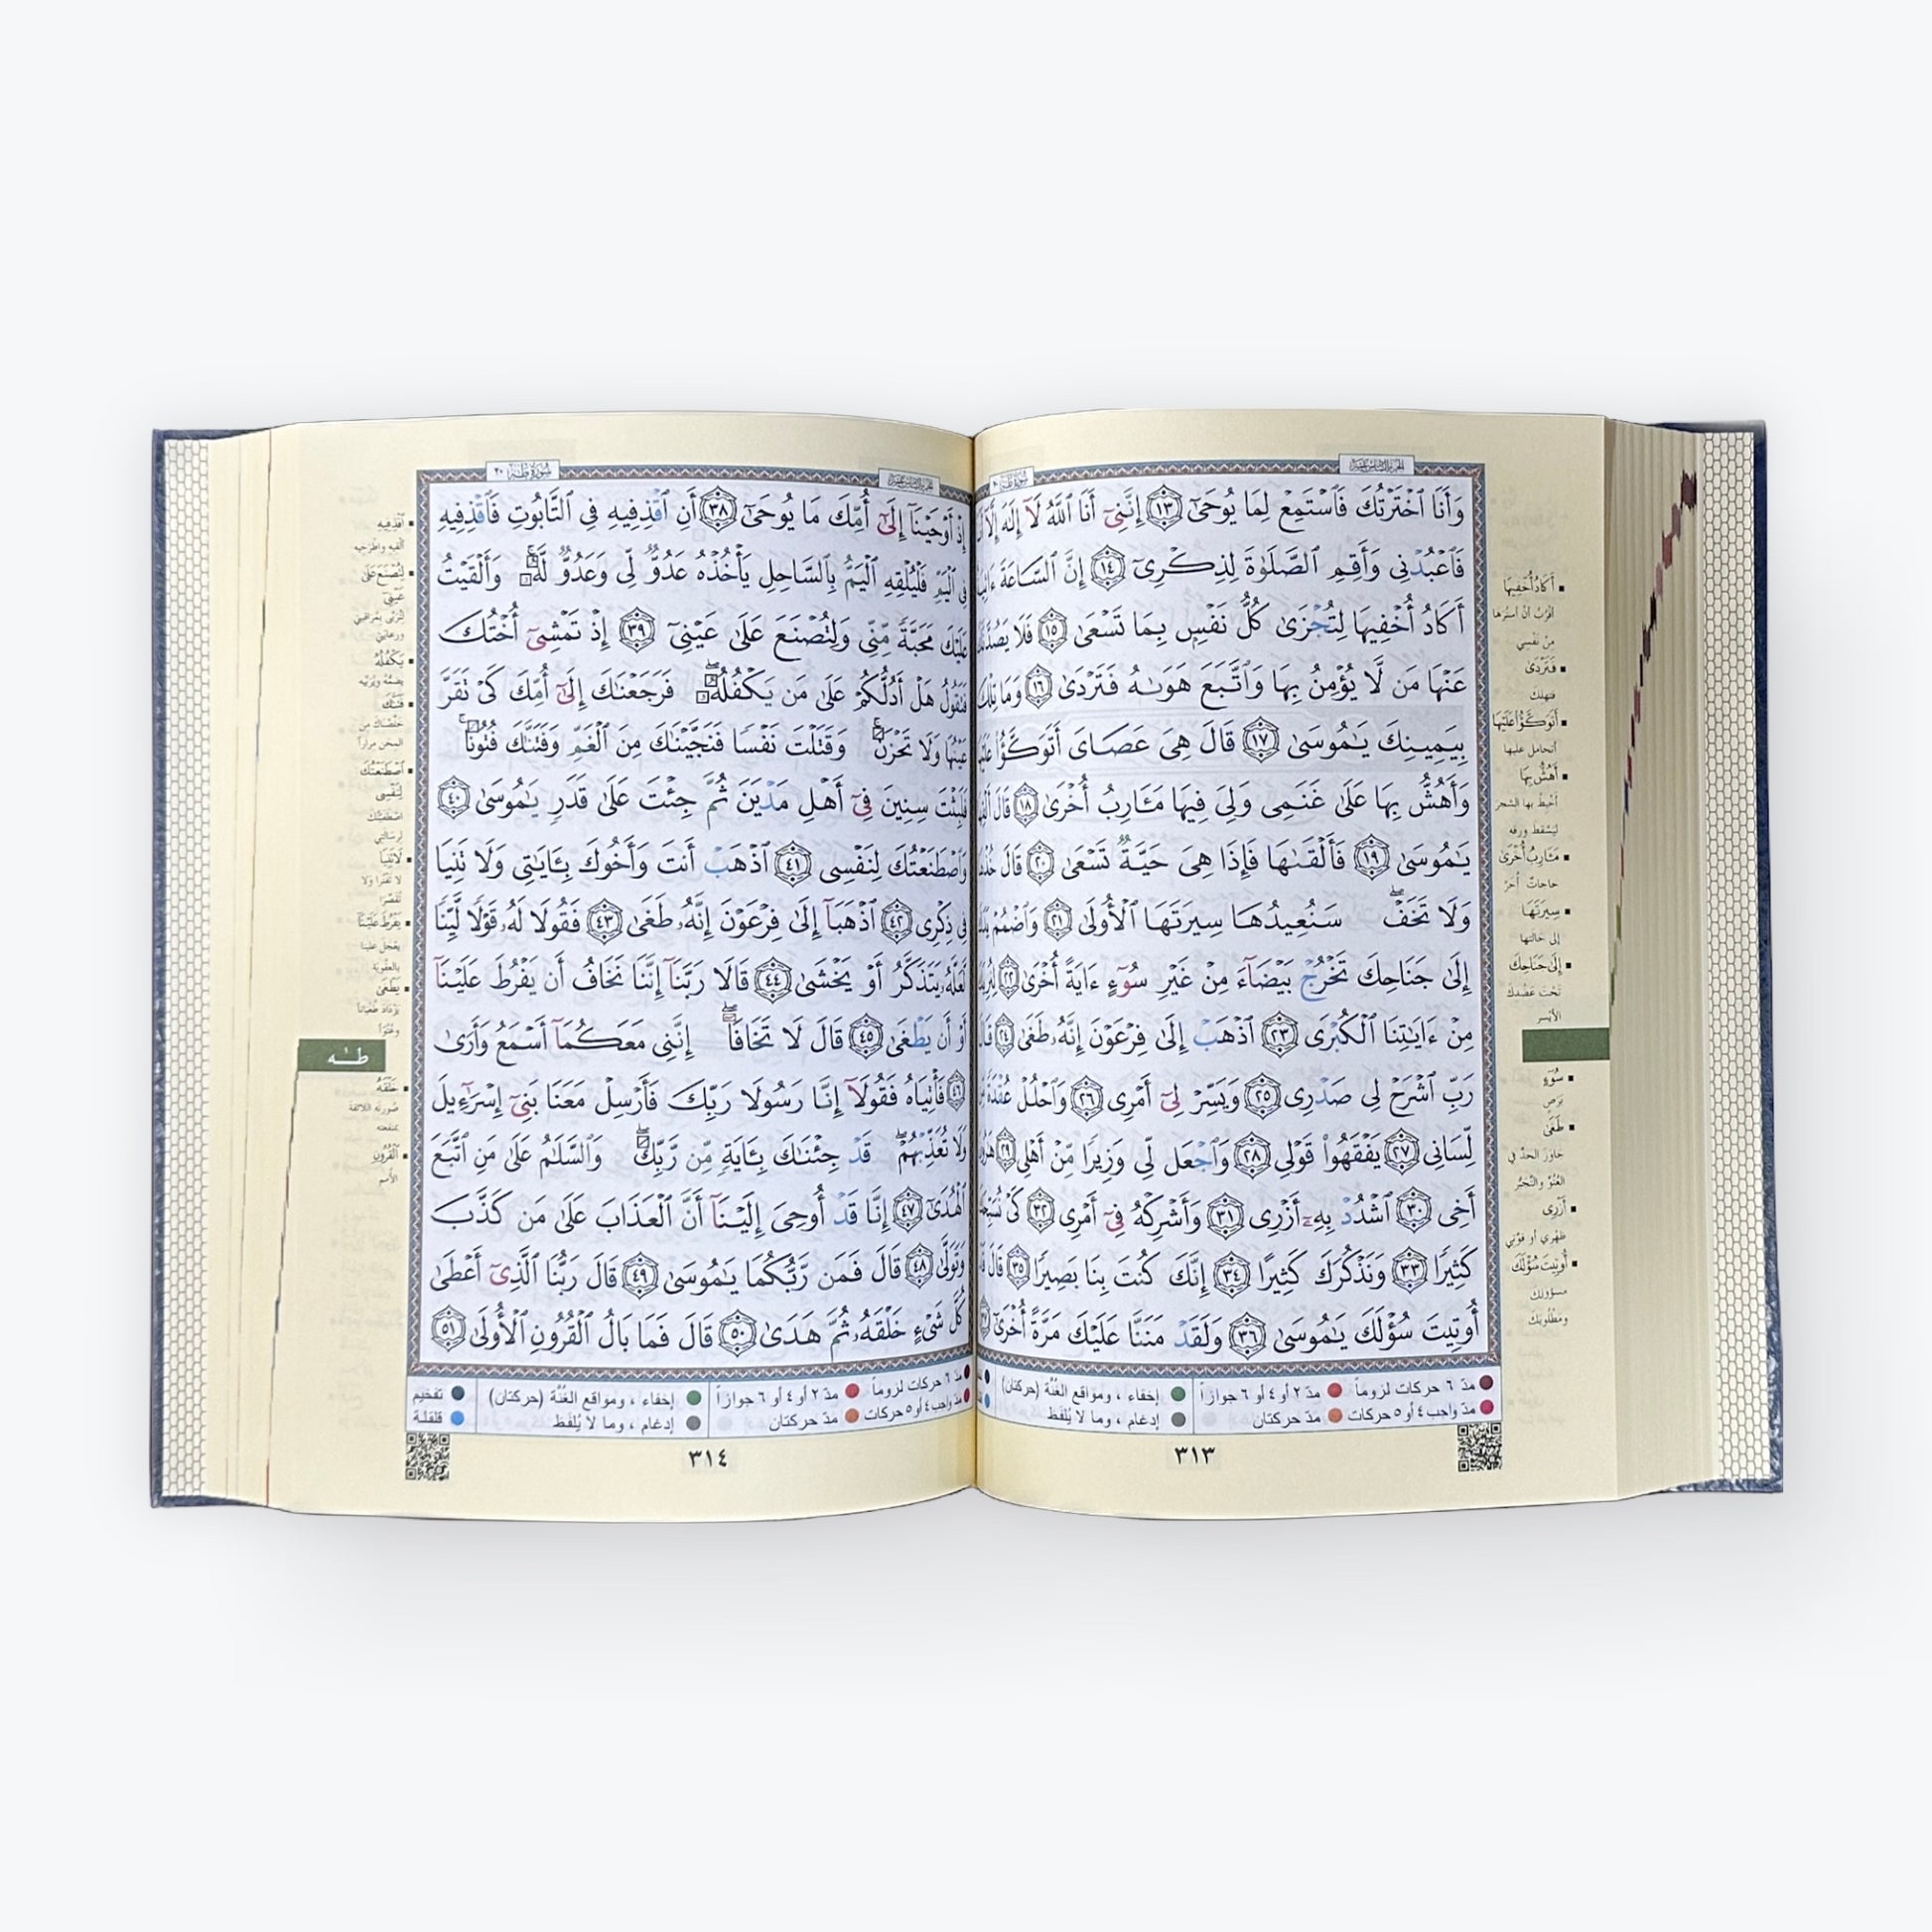 سُورَةُ طه
وَأَنَا ٱخۡتَرۡتُكَ فَٱسۡتَمِعۡ لِمَا يُوحَىٰٓ ١٣ إِنَّنِيٓ أَنَا ٱللَّهُ لَآ إِلَٰهَ إِلَّآ
فَٱعۡبُدۡنِي وَأَقِمِ ٱلصَّلَوٰةَ لِذِكۡرِيٓ ١٤ إِنَّ ٱلسَّاعَةَ
أَكَادُ أُخۡفِيهَا لِتُجۡزَىٰ كُلُّ نَفۡسِۭ بِمَا تَسۡعَىٰ ١٥ فَلَا
عَنۡهَا مَن لَّا يُؤۡمِنُ بِهَا وَٱتَّبَعَ هَوَىٰهُ فَتَرۡدَىٰ ١٦ وَمَا تِلۡكَ
بِيَمِينِكَ يَٰمُوسَىٰ ١٧ قَالَ هِيَ عَصَايَ أَتَوَكَّؤُاْ
وَأَهُشُّ بِهَا عَلَىٰ غَنَمِي وَلِيَ فِيهَا مَـَٔارِبُ أُخۡرَىٰ ١٨ قَالَ
يَٰمُوسَىٰ ١٩ فَأَلۡقَىٰهَا فَإِذَا هِيَ حَيَّةٞ تَسۡعَىٰ ٢٠ قَالَ
وَلَا تَخَفۡۖ سَنُعِيدُهَا سِيرَتَهَا ٱلۡأُولَىٰ ٢١ وَٱضۡمُمۡ
إِلَىٰ جَنَاحِكَ تَخۡرُجۡ بَيۡضَآءَ مِنۡ غَيۡرِ سُوٓءٍ ءَايَةً أُخۡرَىٰ ٢٢
مِنۡ ءَايَٰتِنَا ٱلۡكُبۡرَى ٢٣ ٱذۡهَبۡ إِلَىٰ فِرۡعَوۡنَ إِنَّهُۥ طَغَىٰ ٢٤
رَبِّ ٱشۡرَحۡ لِي صَدۡرِي ٢٥ وَيَسِّرۡ لِيٓ أَمۡرِي ٢٦ وَٱحۡلُلۡ عُقۡدَةٗ
لِّسَانِي ٢٧ يَفۡقَهُواْ قَوۡلِي ٢٨ وَٱجۡعَل لِّي وَزِيرٗا مِّنۡ أَهۡلِي ٢٩
أَخِي ٣٠ ٱشۡدُدۡ بِهِۦٓ أَزۡرِي ٣١ وَأَشۡرِكۡهُ فِيٓ أَمۡرِي ٣٢ كَيۡ
كَثِيرٗا ٣٣ وَنَذۡكُرَكَ كَثِيرًا ٣٤ إِنَّكَ كُنتَ بِنَا بَصِيرٗا ٣٥ قَالَ
أُوتِيتَ سُؤۡلَكَ يَٰمُوسَىٰ ٣٦ وَلَقَدۡ مَنَنَّا عَلَيۡكَ مَرَّةً أُخۡرَىٰٓ
أَكَادُ أُخۡفِيهَا
أقرب أن أسترها
من نفسي
فَتَرۡدَىٰ
فتهلك
أَتَوَكَّؤُاْ عَلَيۡهَا
أتحامل عليها
أَهُشُّ بِهَا
أخبط بها الشجر
ليسقط ورقه
مَـَٔارِبُ أُخۡرَىٰ
حاجات أخر
سِيرَتَهَا
إلى حالتها
إِلَىٰ جَنَاحِكَ
تحت عضدك
الأيسر
سُوٓءٍ
برص
طَغَىٰ
جاوز الحد في
العتو والتجبر
أَزۡرِي
ظهري أو قوتي
أُوتِيتَ سُؤۡلَكَ
مسؤولك
ومطلوبك
مدّ ٦ حركات لزوماً مدّ ٢ أو ٤ أو ٦ جوازاً إخفاء ، ومواقع الغُنَّة (حركتان)
مدّ واجب ٤ أو ٥ حركات مدّ حركتان إدغام ، وما لا يُلفَظ
٣١٣
سُورَةُ طه ٢٠
إِذۡ أَوۡحَيۡنَآ إِلَىٰٓ أُمِّكَ مَا يُوحَىٰٓ ٣٨ أَنِ ٱقۡذِفِيهِ فِي ٱلتَّابُوتِ فَٱقۡذِفِيهِ
فِي ٱلۡيَمِّ فَلۡيُلۡقِهِ ٱلۡيَمُّ بِٱلسَّاحِلِ يَأۡخُذۡهُ عَدُوّٞ لِّي وَعَدُوّٞ لَّهُۥۚ وَأَلۡقَيۡتُ
عَلَيۡكَ مَحَبَّةٗ مِّنِّي وَلِتُصۡنَعَ عَلَىٰ عَيۡنِيٓ ٣٩ إِذۡ تَمۡشِيٓ أُخۡتُكَ
فَتَقُولُ هَلۡ أَدُلُّكُمۡ عَلَىٰ مَن يَكۡفُلُهُۥۖ فَرَجَعۡنَٰكَ إِلَىٰٓ أُمِّكَ كَيۡ تَقَرَّ
عَيۡنُهَا وَلَا تَحۡزَنَۚ وَقَتَلۡتَ نَفۡسٗا فَنَجَّيۡنَٰكَ مِنَ ٱلۡغَمِّ وَفَتَنَّٰكَ فُتُونٗاۚ
فَلَبِثۡتَ سِنِينَ فِيٓ أَهۡلِ مَدۡيَنَ ثُمَّ جِئۡتَ عَلَىٰ قَدَرٖ يَٰمُوسَىٰ ٤٠
وَٱصۡطَنَعۡتُكَ لِنَفۡسِي ٤١ ٱذۡهَبۡ أَنتَ وَأَخُوكَ بِـَٔايَٰتِي وَلَا تَنِيَا
فِي ذِكۡرِي ٤٢ ٱذۡهَبَآ إِلَىٰ فِرۡعَوۡنَ إِنَّهُۥ طَغَىٰ ٤٣ فَقُولَا لَهُۥ قَوۡلٗا لَّيِّنٗا
لَّعَلَّهُۥ يَتَذَكَّرُ أَوۡ يَخۡشَىٰ ٤٤ قَالَا رَبَّنَآ إِنَّنَا نَخَافُ أَن يَفۡرُطَ عَلَيۡنَآ
أَوۡ أَن يَطۡغَىٰ ٤٥ قَالَ لَا تَخَافَآۖ إِنَّنِي مَعَكُمَآ أَسۡمَعُ وَأَرَىٰ
٤٦ فَأۡتِيَاهُ فَقُولَآ إِنَّا رَسُولَا رَبِّكَ فَأَرۡسِلۡ مَعَنَا بَنِيٓ إِسۡرَٰٓءِيلَ
وَلَا تُعَذِّبۡهُمۡۖ قَدۡ جِئۡنَٰكَ بِـَٔايَةٖ مِّن رَّبِّكَۖ وَٱلسَّلَٰمُ عَلَىٰ مَنِ ٱتَّبَعَ
ٱلۡهُدَىٰٓ ٤٧ إِنَّا قَدۡ أُوحِيَ إِلَيۡنَآ أَنَّ ٱلۡعَذَابَ عَلَىٰ مَن كَذَّبَ
وَتَوَلَّىٰ ٤٨ قَالَ فَمَن رَّبُّكُمَا يَٰمُوسَىٰ ٤٩ قَالَ رَبُّنَا ٱلَّذِيٓ أَعۡطَىٰ
كُلَّ شَيۡءٍ خَلۡقَهُۥ ثُمَّ هَدَىٰ ٥٠ قَالَ فَمَا بَالُ ٱلۡقُرُونِ ٱلۡأُولَىٰ ٥١
ٱقۡذِفِيهِ
ألقيه واطرحيه
لِتُصۡنَعَ عَلَىٰ
عَيۡنِيٓ
لتربى بمراقبتي
ورعايتي
يَكۡفُلُهُۥ
يضمه ويربيه
فَتَنَّٰكَ
خلصناك من
المحن مرارا
ٱصۡطَنَعۡتُكَ
لِنَفۡسِي
اصطفيتك
لرسالتي
لَا تَنِيَا
لا تفترا ولا
تقصرا
يَفۡرُطَ عَلَيۡنَآ
يعجل علينا
بالعقوبة
يَطۡغَىٰ
يزداد طغيانا
وعتوا
طه
خَلۡقَهُۥ
صورته اللائقة
بمنفعته
ٱلۡقُرُونِ
الأمم
مدّ ٦ حركات لزوماً مدّ ٢ أو ٤ أو ٦ جوازاً إخفاء ، ومواقع الغُنَّة (حركتان) تفخيم
مدّ واجب ٤ أو ٥ حركات مدّ حركتان إدغام ، وما لا يُلفَظ قلقلة
٣١٤